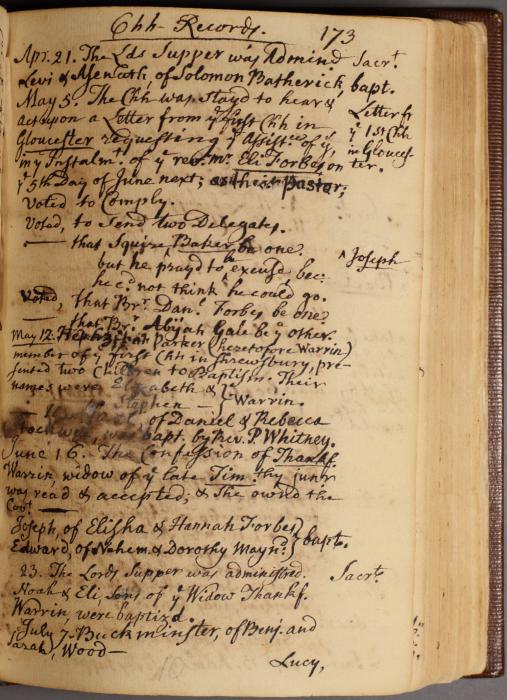 Chh Records.      173
Apr. 21. The Lds Supper was Admind. Sacrt.
Levi & Asenath, of Solomon Batherick, bapt.
May 5. The Chh was stayd to hear & Letter fr
act upon a Letter from yᵉ first Chh in yᵉ 1st Chh
Gloucester requesting yᵉ Assistce of us, in Glouces-
in yᵉ Instalmt. of yᵉ revd. mr. Eli Forbes on ter.
yᵉ 5th Day of June next; as their Pastor;
Voted to Comply.
Voted, to send two Delegates,
— that Squire Baker be one. ^ Joseph
but he prayd to ^ excusd, bec:
he cd. not think he could go.
Voted, that Br. Danl. Forbes be one
— that Br. Abijah Gale be yᵉ other.
May 12. Hephzibah Parker (heretofore Warrin)
member of yᵉ first Chh in Shrewsbury, pre-
sented two Children to Baptism. Their
names were Elizabeth &
Stephen — Warrin.
of Daniel & Rebecca
was bapt. by Rev. P. Whitney.
June 16. The Confession of Thankf.
Warrin, widow of yᵉ late Timothy junr
was read & accepted; & she ownd the
Covt. —
Joseph, of Elisha & Hannah Forbes
Edward, of Nahem. & Dorothy Maynd. } bapt.
23. The Lords Supper was administred. Sacrt.
Noah & Eli Sons of yᵉ Widow Thankf.
Warrin, were baptizd.
July 7. Buckminster, of Benj. and
Sarah, Wood —
Lucy,